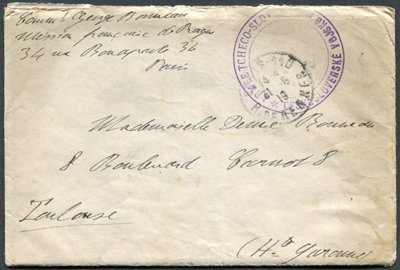 Comm.t George Bonneau
Mission française de Prague
34 rue Bonaparte 34
Paris
TCHECO-SLO
SLOVENSKÉ VOJSKO
Mademoiselle Bonneau
8 Boulevard Carnot 8
Toulouse
(Hte Garonne)